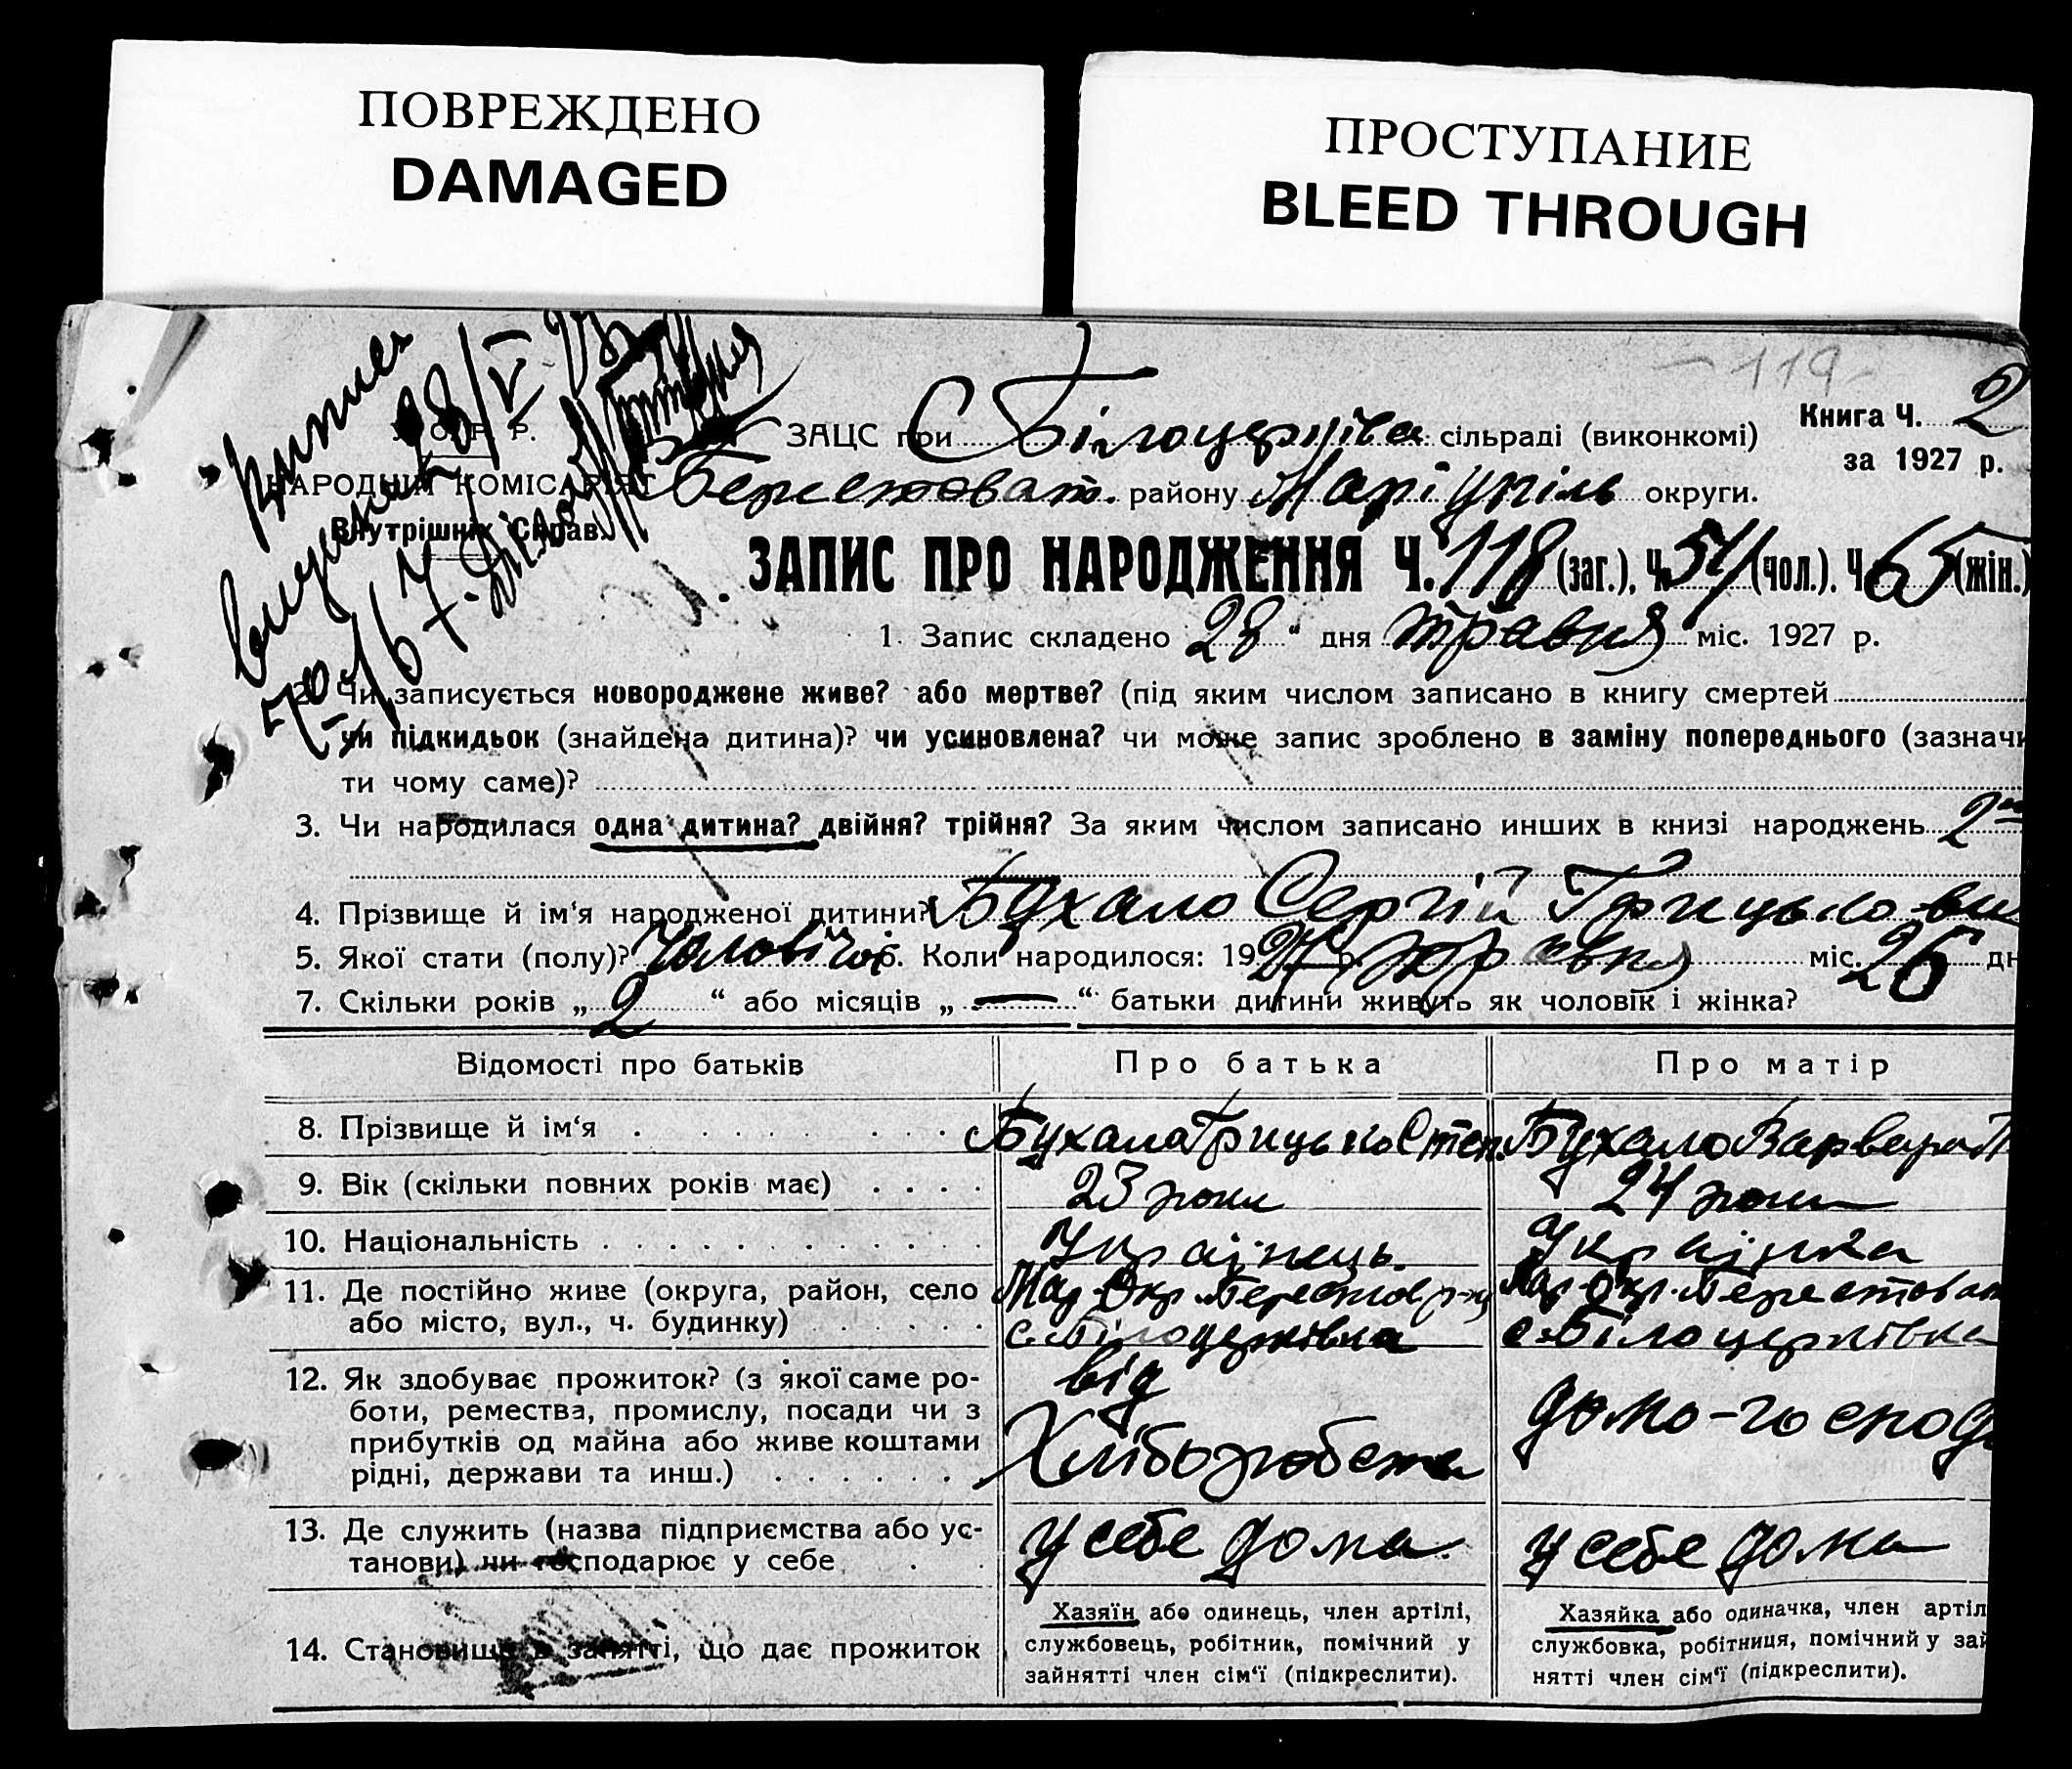 ПОВРЕЖДЕНО
DAMAGED
ПРОСТУПАНИЕ
BLEED THROUGH
-119-
Книга Ч. 2
за 1927 р.
ЗАЦС при с Білоцерківа сільраді (виконкомі)
НАРОДНІЙ КОМІСАРІЯТ
Внутрішніх Справ.
Берестоват. району Маріупіль округи.
ЗАПИС ПРО НАРОДЖЕННЯ Ч. 118 (заг.), Ч. 54 (чол.). Ч 65 (жін.)
1. Запис складено 28 “ дня травня міс. 1927 р.
2. Чи записується новороджене живе? або мертве? (під яким числом записано в книгу смертей
чи підкидьок (знайдена дитина)? чи усиновлена? чи може запис зроблено в заміну попереднього (зазначи
ти чому саме)?
3. Чи народилася одна дитина? двійня? трійня? За яким числом записано инших в книзі народжень 2
4. Прізвище й ім‘я народженої дитини? Бухало Сергій Грицько ви
5. Якої стати (полу)? Чоловічої 6. Коли народилося: 1927 р. травня міс. 26 дн
7. Скільки років „ 2 “ або місяців „ — “ батьки дитини живуть як чоловік і жінка?
Відомості про батьків
Про батька
Про матір
8. Прізвище й ім‘я
Бухала Грицько Степ.
Бухало Варвара П
9. Вік (скільки повних років має)
23 роки
24 роки
10. Національність
Українець.
Українка
11. Де постійно живе (округа, район, село
або місто, вул., ч. будинку)
Мар. Окр. Берестов р-н
с. Білоцерківка
Мар. Окр. Берестоват
с. Білоцерківка
12. Як здобуває прожиток? (з якої саме ро-
боти, ремества, промислу, посади чи з
прибутків од майна або живе коштами
рідні, держави та инш.)
від
Хліборобства
домо-господ
13. Де служить (назва підприємства або ус-
танови) чи господарює у себе
у себе дома.
у себе дома
14. Становище в занятті, що дає прожиток
Хазяїн або одинець, член артілі,
службовець, робітник, помічний у
зайнятті член сім‘ї (підкреслити).
Хазяйка або одиначка, член артіл
службовка, робітниця, помічний у зай
нятті член сім‘ї (підкреслити).